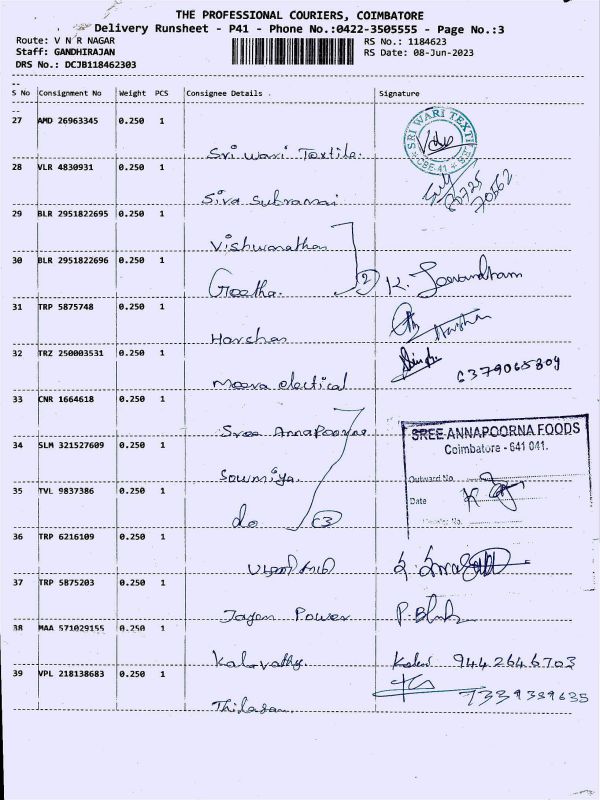 THE PROFESSIONAL COURIERS, COIMBATORE
Delivery Runsheet - P41 - Phone No.:0422-3505555 - Page No.:3
Route: V N R NAGAR
RS No.: 1184623
Staff: GANDHIRAJAN
RS Date: 08-Jun-2023
DRS No.: DCJB118462303
S No Consignment No Weight PCS Consignee Details Signature
27 AMD 26963345 0.250 1
SRI WARI TEXTI
CBE-41
Sri Wari Textile.
28 VLR 4830931 0.250 1
Siva Subramani
29 BLR 2951822695 0.250 1
Vishwanathan
30 BLR 2951822696 0.250 1
Geetha. 2 K.
31 TRP 5875748 0.250 1
Harshan
32 TRZ 250003531 0.250 1
6379065809
Meera electical
33 CNR 1664618 0.250 1
Sree Annapoorna
SREE ANNAPOORNA FOODS
Coimbatore - 641 041.
34 SLM 321527609 0.250 1
Sowmiya.
Outward No.
35 TVL 9837386 0.250 1
Date
do 3
36 TRP 6216109 0.250 1
37 TRP 5875203 0.250 1
Jayam Power
38 MAA 571029155 0.250 1
Kalavathy. 9442646703
39 VPL 218138683 0.250 1
7339339635
Thilagam